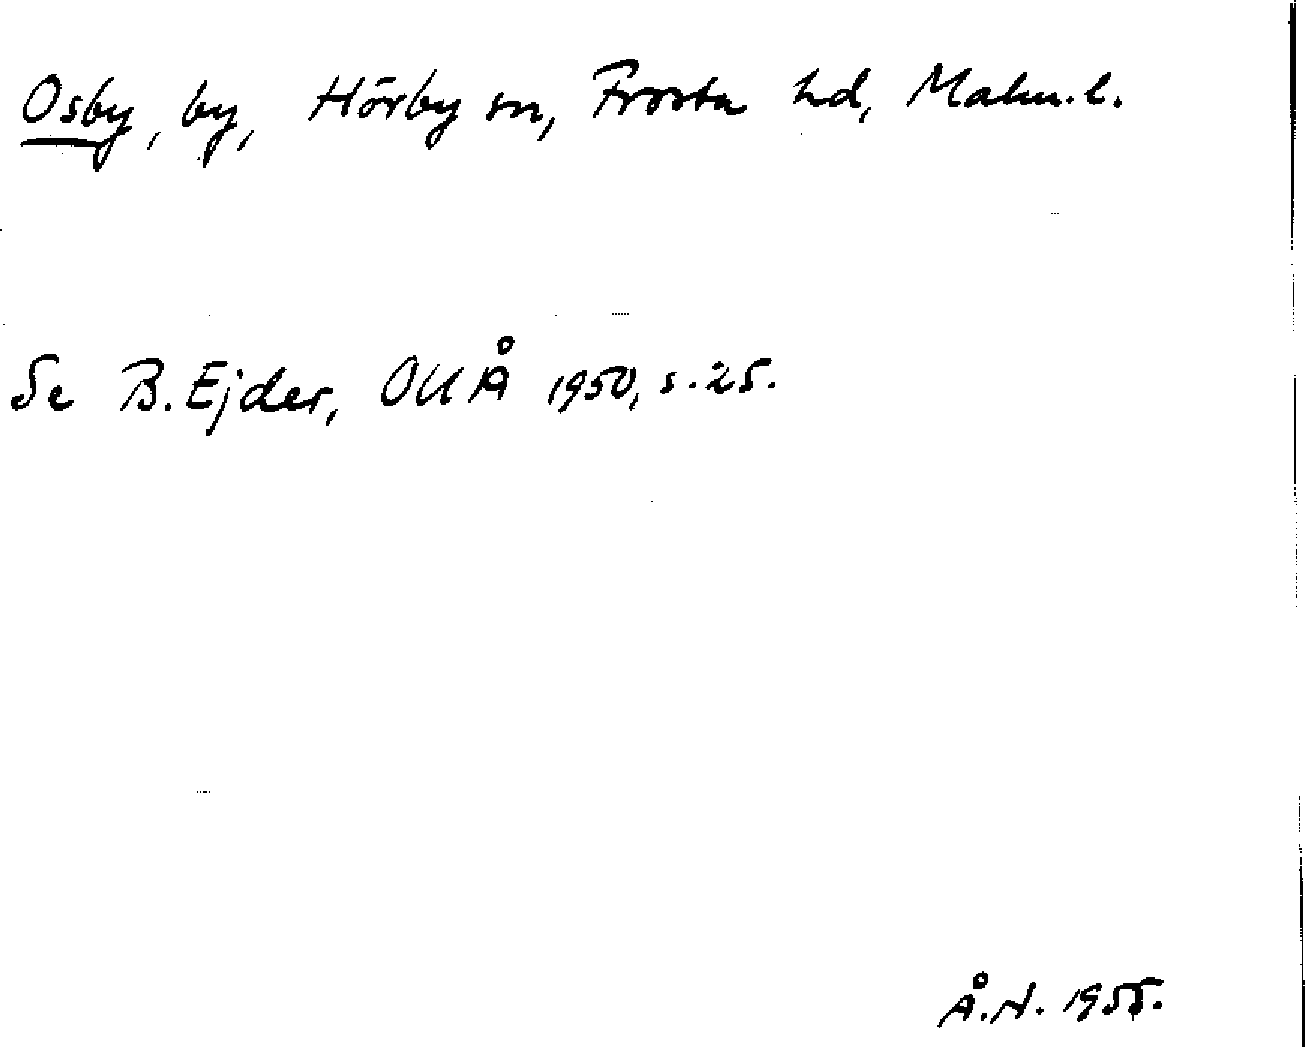 Osby, by, Hörby sn, Frosta hd, Malm. l.
Se B. Ejder, OUÅ 1950, s. 25.
Å.N. 1955.